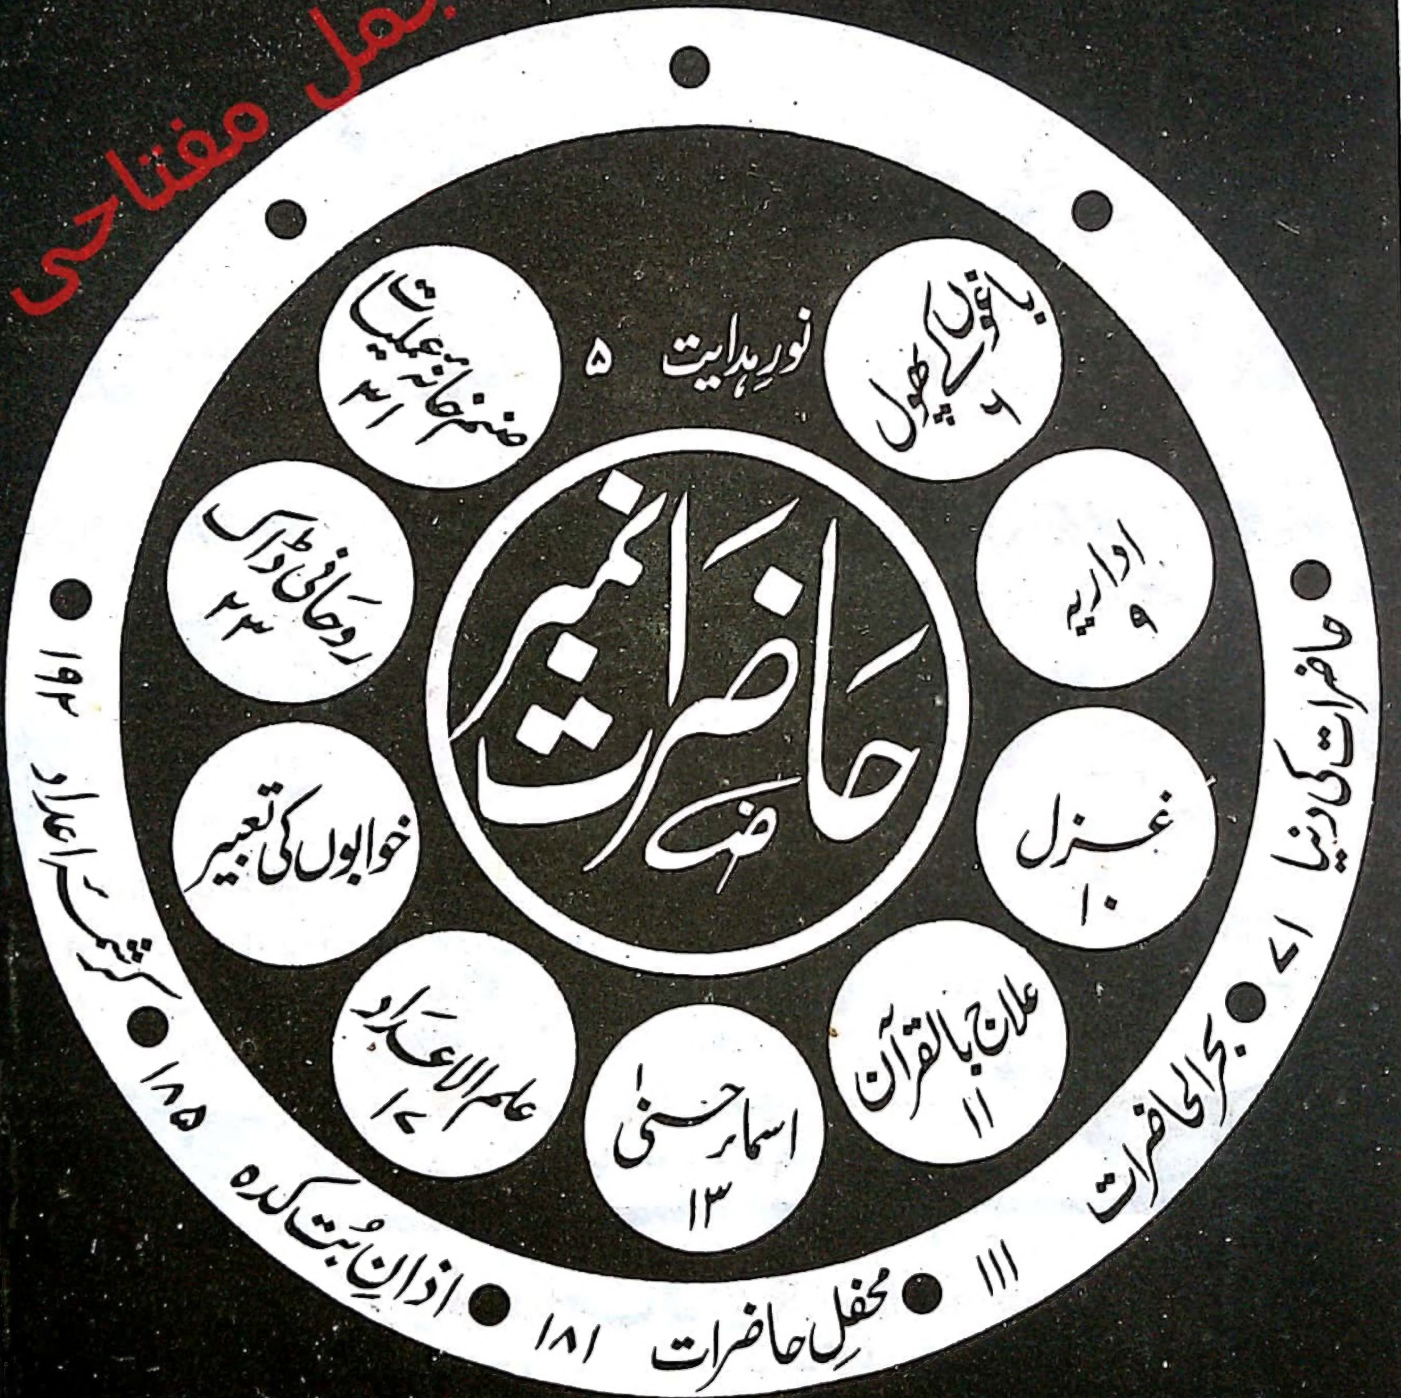 مفتاحی
نورِ ہدایت ۵
باغوں کے پھول
۶
اداریہ
۹
غزل
۱۰
علاج بالقرآن
۱۱
اسماء حسنیٰ
۱۳
علم الاعداد
۱۷
خوابوں کی تعبیر
روحانی ڈاک
۲۳
صنم خانۂ عملیات
۳۱
حاضرات نمبر
حاضرات کی دنیا ۷۱
بحر الحاضرات ۱۱۱
محفلِ حاضرات ۱۸۱
اذانِ بُت کدہ ۱۸۵
اعداد ۱۹۲